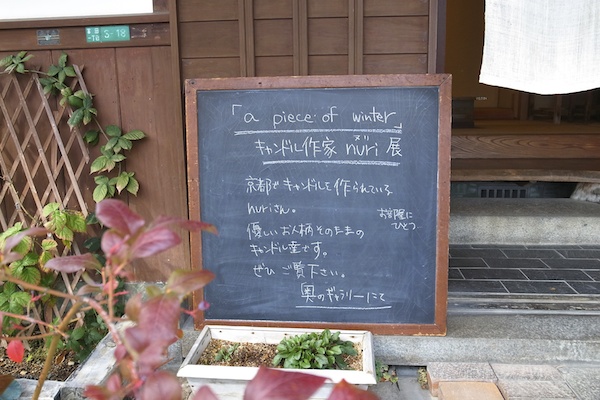 S-18
「a piece of winter」
キャンドル作家 nuri 展
ヌリ
京都でキャンドルを作られている
nuriさん。
優しいお人柄そのままの
キャンドル達です。
お部屋に
ひとつ
ぜひ ご覧下さい。
奥のギャラリーにて